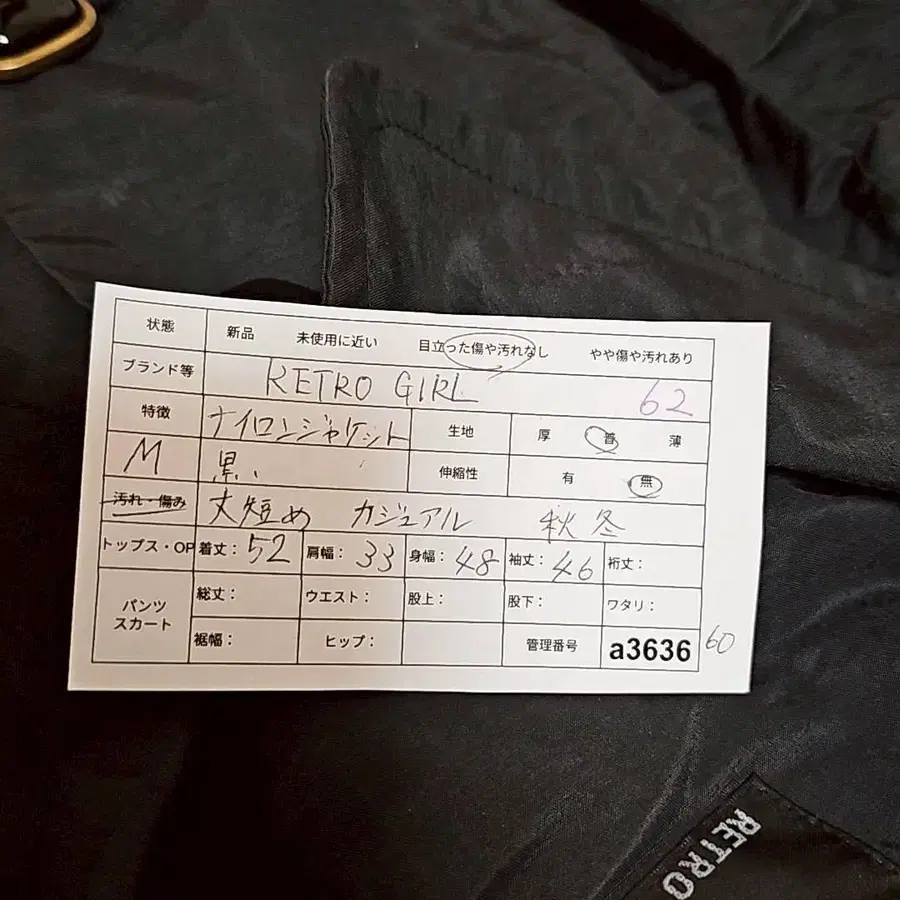 状態 新品 未使用に近い 目立った傷や汚れなし やや傷や汚れあり
ブランド等 RETRO GIRL 62
特徴 ナイロンジャケット 生地 厚 普 薄
M 黒 伸縮性 有 無
汚れ・傷み 丈短め カジュアル 秋冬
トップス・OP 着丈: 52 肩幅: 33 身幅: 48 袖丈: 46 裄丈:
パンツ スカート 総丈: ウエスト: 股上: 股下: ワタリ:
裾幅: ヒップ: 管理番号 a3636 60
RETRO